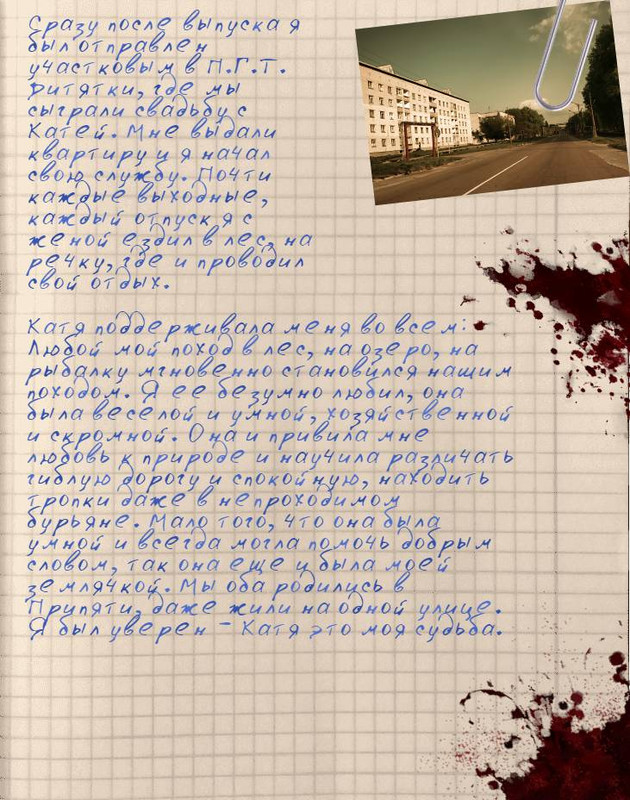 Сразу после выпуска я
был отправлен
участковым в П.Г.Т.
Дитятки, где мы
сыграли свадьбу с
Катей. Мне выдали
квартиру и я начал
свою службу. Почти
каждые выходные,
каждый отпуск я с
женой ездил в лес, на
речку, где и проводил
свой отдых.
Катя поддерживала меня во всем:
Любой мой поход в лес, на озеро, на
рыбалку мгновенно становился нашим
походом. Я ее безумно любил, она
была веселой и умной, хозяйственной
и скромной. Она и привила мне
любовь к природе и научила различать
гиблую дорогу и спокойную, находить
тропки даже в непроходимом
бурьяне. Мало того, что она была
умной и всегда могла помочь добрым
словом, так она еще и была моей
землячкой. Мы оба родились в
Припяти, даже жили на одной улице.
Я был уверен - Катя это моя судьба.